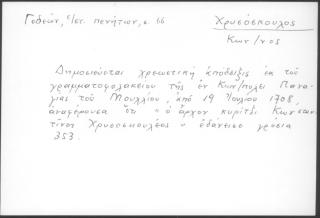 Γεδεών, Cἰστ. πενήτων, σ. 66
Χρυσόσκουλος
Κων/νος
Δημοσιεύεται χρεωστική ἀπόδειξις ἐκ τοῦ
γραμματοφυλακείου τῆς ἐν Κων/πόλει Πανα-
γίας τοῦ Μουχλίου, ἀπό 19 Ἰουλίου 1708
ἀναφέρουσα ὅτι ὁ ἄρχον κυρίτζι Κωνσταν-
τῖνος Χρυσοσκουλέος ἐδάνεισε γρόσια
353.